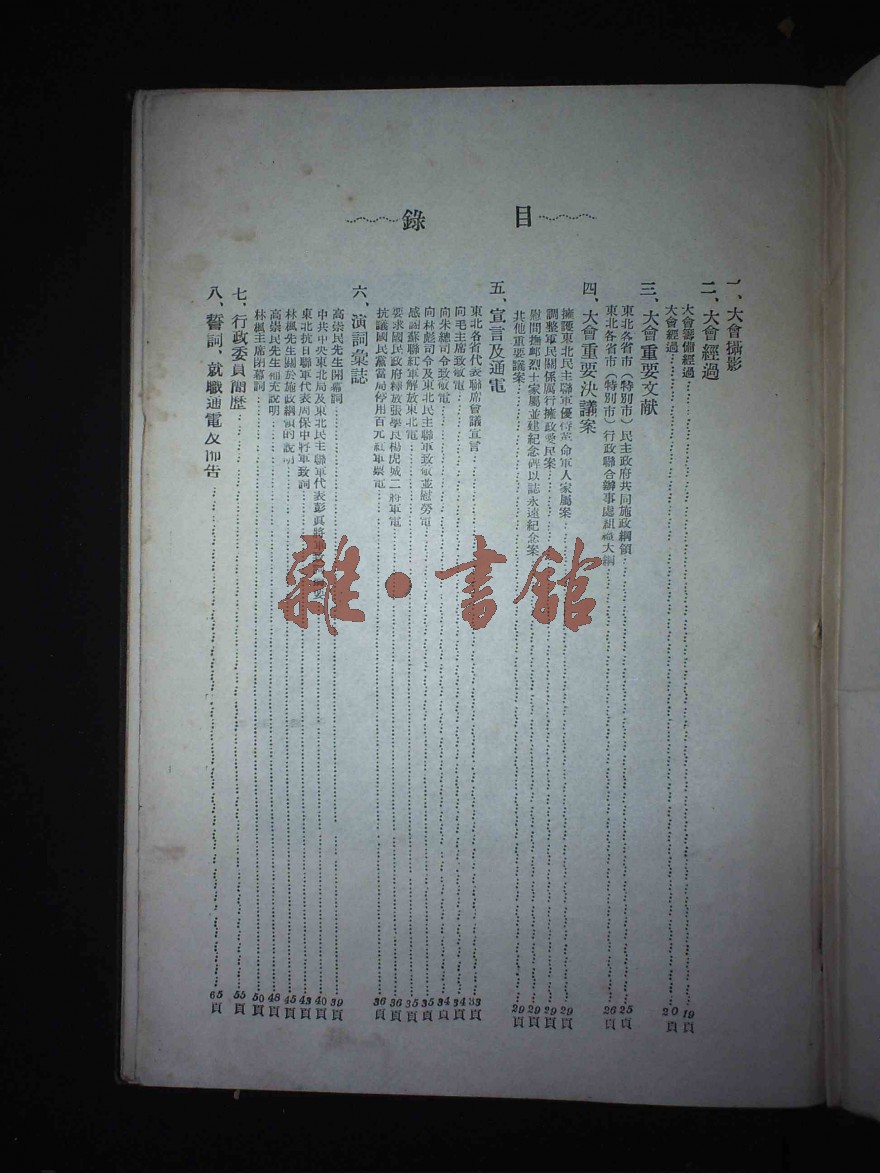 目錄
一、大會攝影
二、大會經過
大會籌備經過 19頁
大會經過 20頁
三、大會重要文献
東北各省市（特別市）民主政府共同施政綱領 25頁
東北各省市（特別市）行政聯合辦事處組織大綱 26頁
四、大會重要決議案
擁護東北民主聯軍優待革命軍人家屬案 29頁
調整軍民關係厲行擁政愛民案 29頁
慰問撫卹烈士家屬並建紀念碑以誌永遠紀念案 29頁
其他重要議案 29頁
五、宣言及通電
東北各省代表聯席會議宣言 33頁
向毛主席致敬電 34頁
向朱總司令致敬電 34頁
向林彪司令及東北民主聯軍致敬並慰勞電 35頁
感謝蘇聯紅軍解放東北電 35頁
要求國民政府釋放張學良楊虎城二將軍電 36頁
抗議國民黨當局停用百元紅軍票電 36頁
六、演詞彙誌
高崇民先生開幕詞 39頁
中共中央東北局及東北民主聯軍代表彭眞將軍 40頁
東北抗日聯軍代表周保中將軍致詞 43頁
林楓先生關於施政綱領的說明 45頁
高崇民先生補充說明 48頁
林楓主席閉幕詞 50頁
七、行政委員簡歷 55頁
八、誓詞、就職通電及佈告 65頁
雜·書館